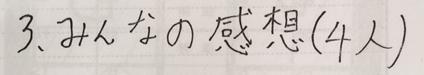 3、みんなの感想(4人)